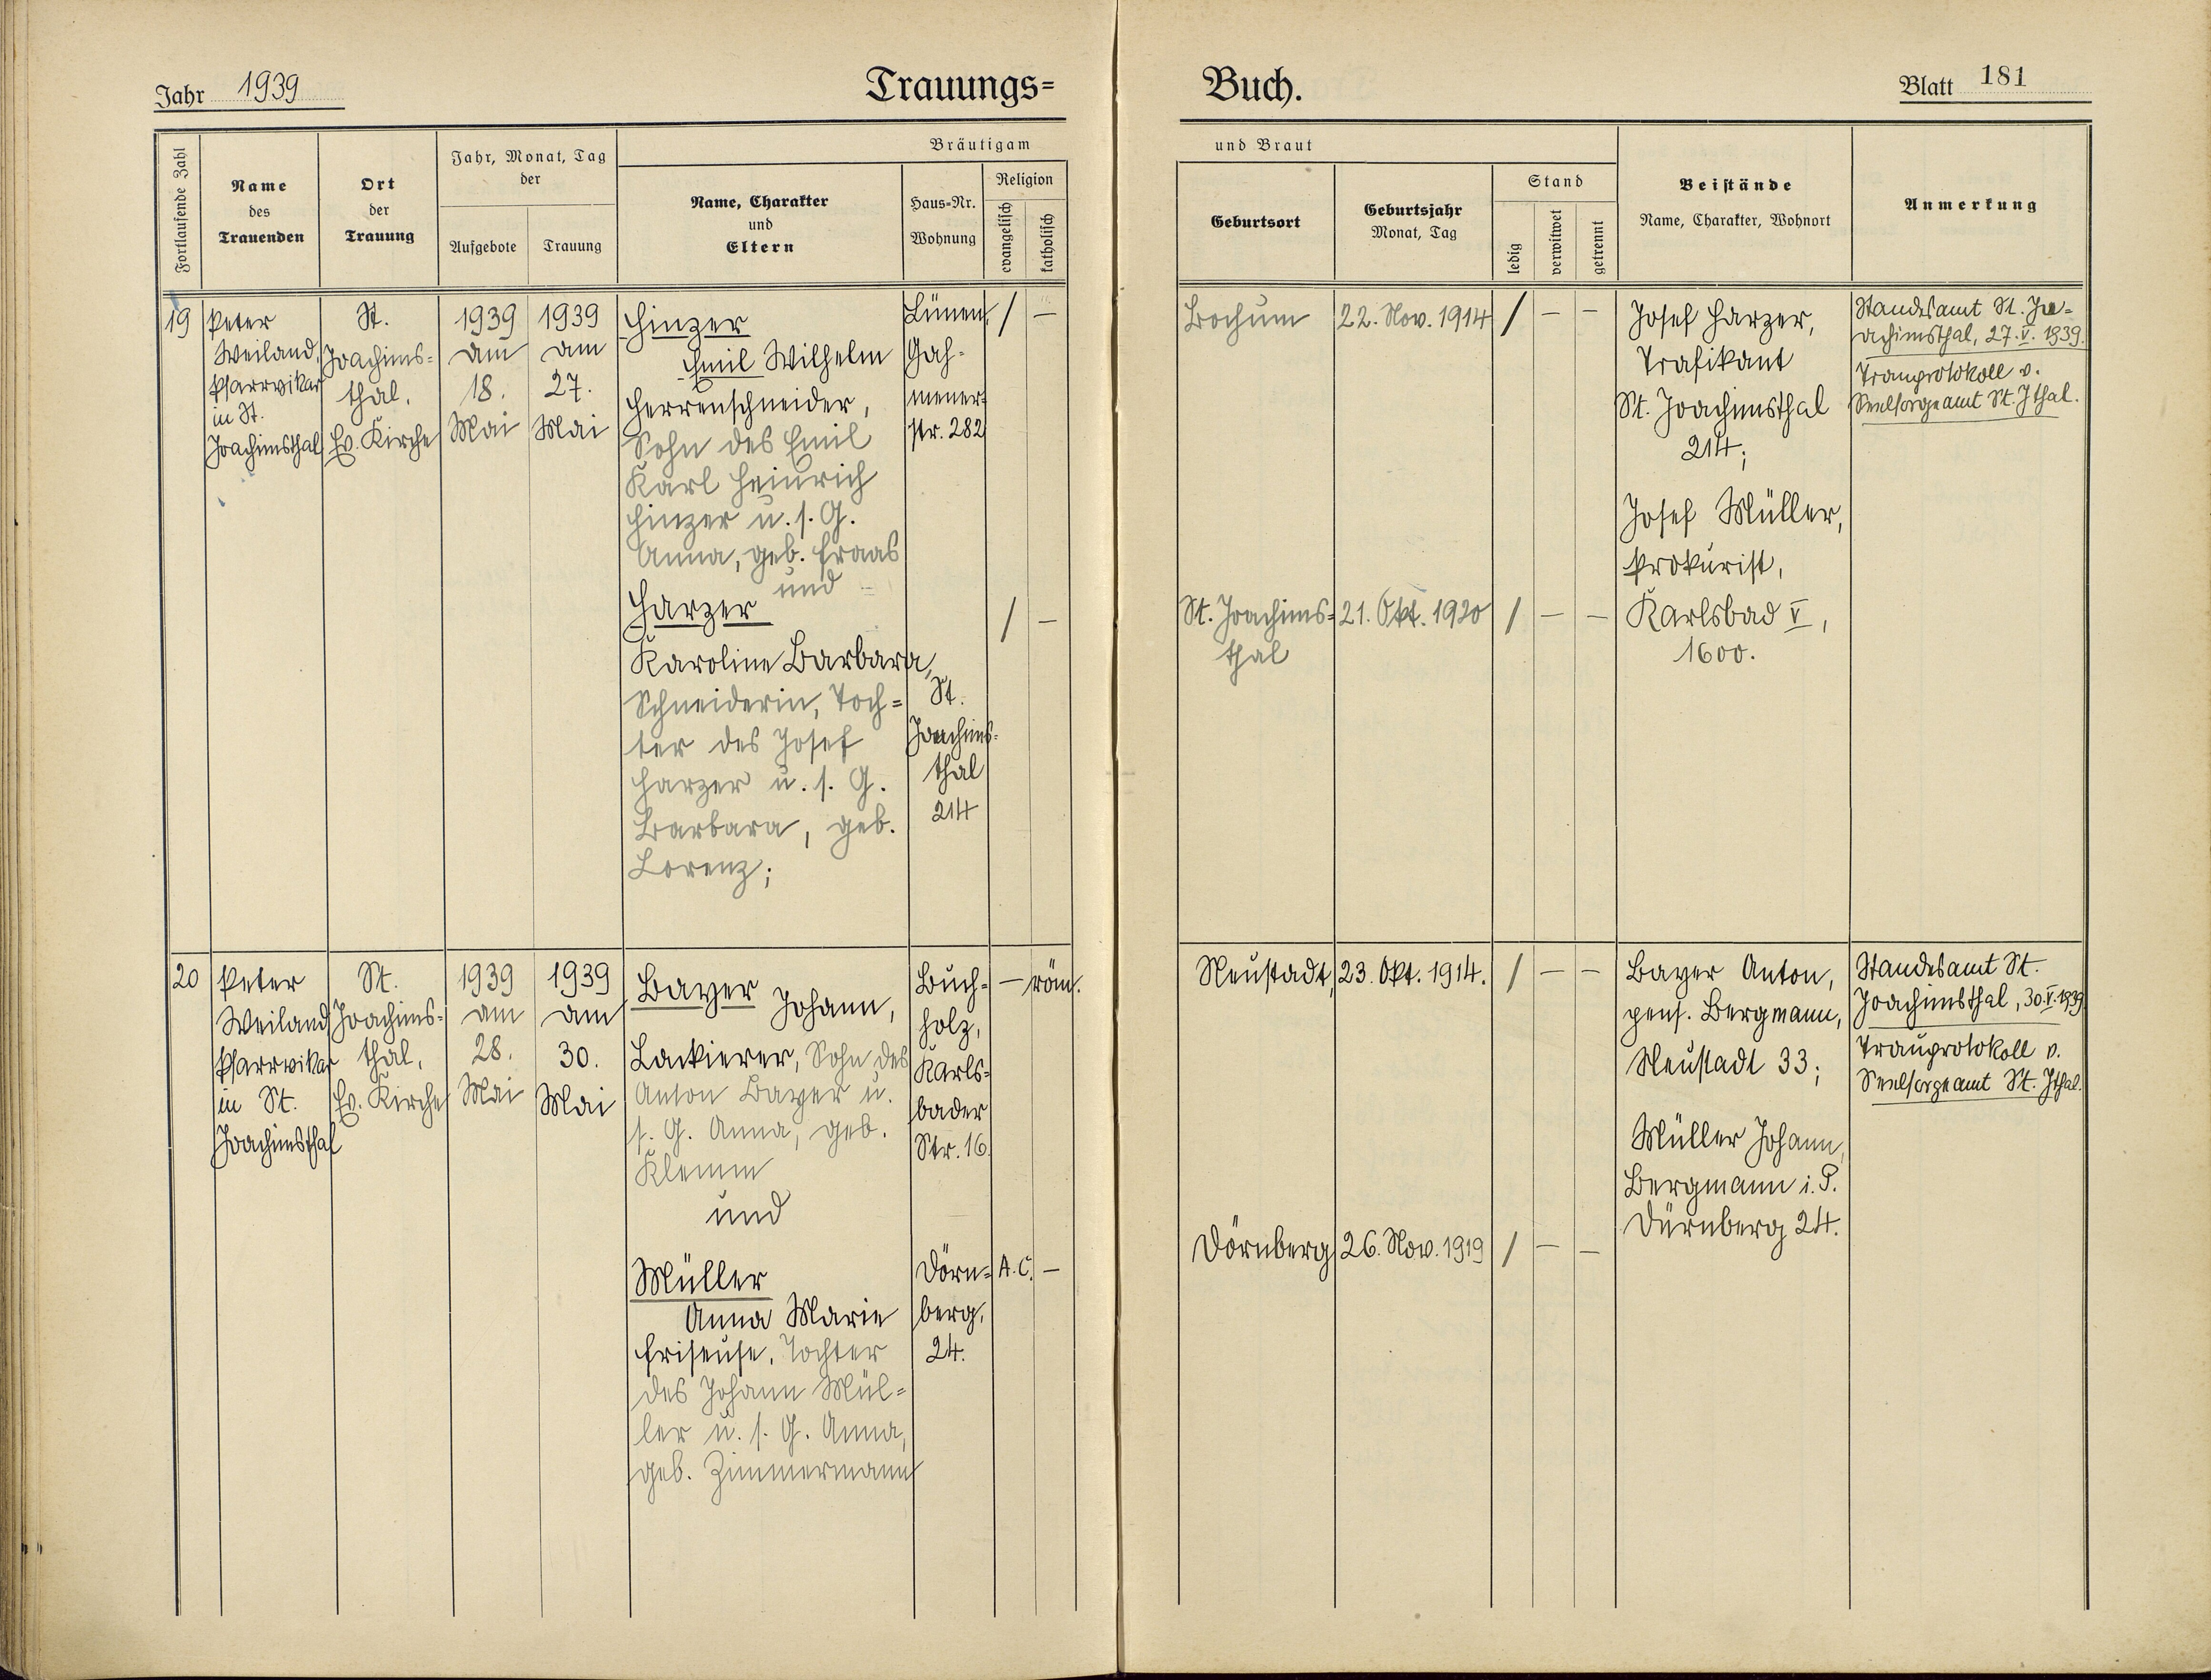 Jahr 1939
Trauungs=
Buch.
Blatt 181
Fortlaufende Zahl
Name
des
Trauenden
Ort
der
Trauung
Jahr, Monat, Tag
der
Aufgebote
Trauung
Bräutigam
Name, Charakter
und
Eltern
Haus=Nr.
Wohnung
Religion
evangelisch
katholisch
und Braut
Geburtsort
Geburtsjahr
Monat, Tag
Stand
ledig
verwitwet
getrennt
Beistände
Name, Charakter, Wohnort
Anmerkung
19
Peter
Weiland,
Pfarrvikar
in St.
Joachimsthal
St.
Joachims=
thal.
Ev. Kirche
1939
am
18.
Mai
1939
am
27.
Mai
Hinzer
Emil Wilhelm
Herrenschneider,
Sohn des Emil
Karl Heinrich
Hinzer u. s. G.
Anna, geb. Fraas
und
Harzer
Karoline Barbara,
Schneiderin, Toch=
ter des Josef
Harzer u. s. G.
Barbara, geb.
Lorenz;
Lünen,
Gah=
mener=
str. 282
St.
Joachims=
thal
214
/ —
/ —
Bochum
22. Nov. 1914
/ — —
St. Joachims=
thal
21. Okt. 1920
/ — —
Josef Harzer,
Trafikant
St. Joachimsthal
214;
Josef Müller,
Prokurist,
Karlsbad V,
1600.
Standesamt St. Jo=
achimsthal, 27. V. 1939.
Trauprotokoll v.
Seelsorgeamt St. Jthal.
20
Peter
Weiland
Pfarrvikar
in St.
Joachimsthal
St.
Joachims=
thal.
Ev. Kirche
1939
am
28.
Mai
1939
am
30.
Mai
Bayer Johann,
Lackierer, Sohn des
Anton Bayer u.
s. G. Anna, geb.
Klemm
und
Müller
Anna Marie
Friseuse, Tochter
des Johann Mül=
ler u. s. G. Anna,
geb. Zimmermann
Buch=
holz,
Karls=
bader
Str. 16.
Dörn=
berg,
24.
— röm.
A. C. —
Neustadt,
23. Okt. 1914.
/ — —
Dörnberg
26. Nov. 1919
/ — —
Bayer Anton,
pens. Bergmann,
Neustadt 33;
Müller Johann,
Bergmann i. P.
Dürnberg 24.
Standesamt St.
Joachimsthal, 30. V. 1939
Trauprotokoll v.
Seelsorgeamt St. Jthal.